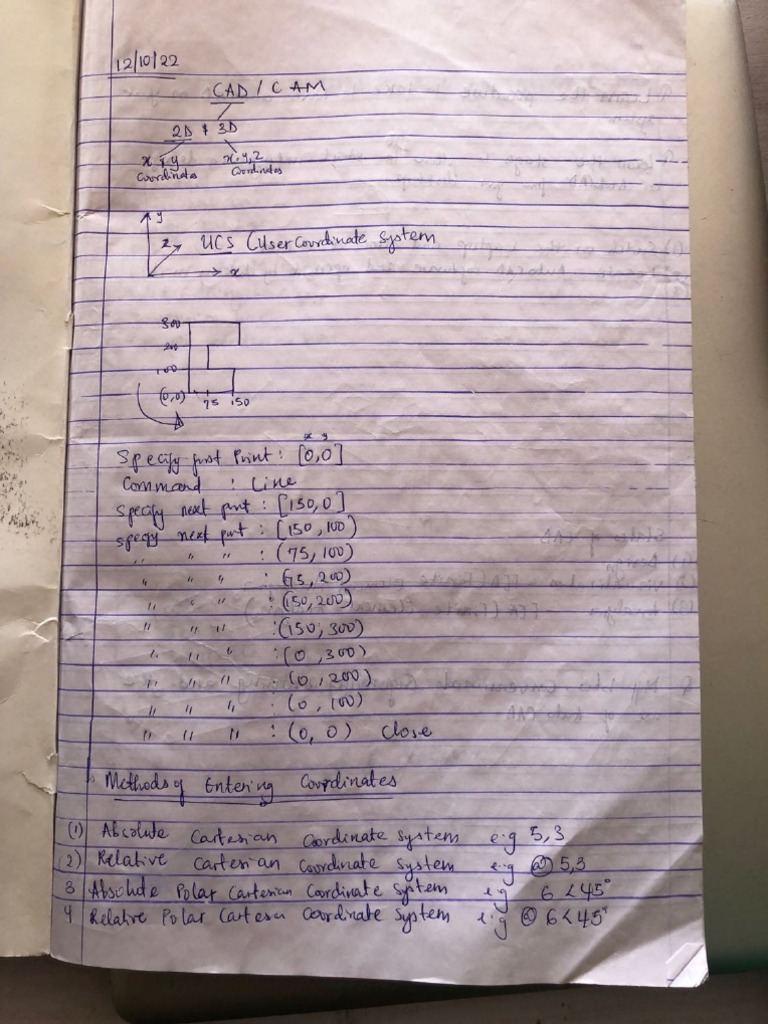 12/10/22
CAD / CAM
2D & 3D
x & y x, y, z
Coordinates Coordinates
y
z UCS (User Coordinate System
x
300
200
100
(0,0) 75 150
x y
Specify first Point : [0,0]
Command : Line
Specify next pont : [150,0]
specify next pont : [150,100)
" " " : (75,100)
" " " : (75,200)
" " " : (150,200)
" " " : (150,300)
" " " : (0,300)
" " " : (0,200)
" " " : (0,100)
" " " : (0,0) Close
Methods of Entering Coordinates
(1) Absolute Cartesian Coordinate System e.g 5,3
(2) Relative Cartesian Coordinate System e.g @ 5,3
3 Absolute Polar Cartesian Coordinate System e.g 6<45°
4 Relative Polar Cartesan Coordinate System e.g @ 6<45°